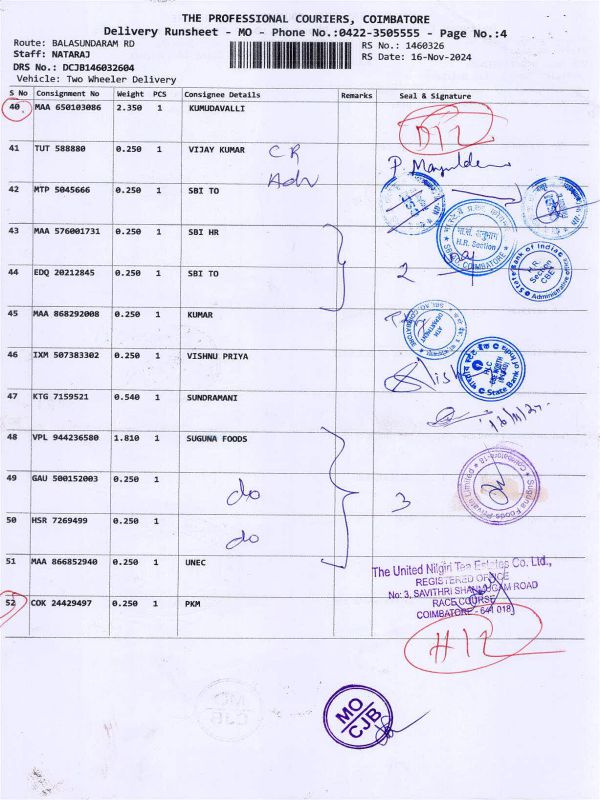 THE PROFESSIONAL COURIERS, COIMBATORE
Delivery Runsheet - MO - Phone No.:0422-3505555 - Page No.:4
Route: BALASUNDARAM RD
RS No.: 1460326
Staff: NATARAJ
RS Date: 16-Nov-2024
DRS No.: DCJB146032604
Vehicle: Two Wheeler Delivery
S No Consignment No Weight PCS Consignee Details Remarks Seal & Signature
40 MAA 650103086 2.350 1 KUMUDAVALLI
41 TUT 588880 0.250 1 VIJAY KUMAR CR
42 MTP 5045666 0.250 1 SBI TO
43 MAA 576001731 0.250 1 SBI HR
H.R. Section
44 EDQ 20212845 0.250 1 SBI TO 2
45 MAA 868292008 0.250 1 KUMAR
46 IXM 507383302 0.250 1 VISHNU PRIYA
State Bank of India
47 KTG 7159521 0.540 1 SUNDRAMANI
48 VPL 944236580 1.810 1 SUGUNA FOODS
49 GAU 500152003 0.250 1 do 3
Suguna Foods Private Limited
50 HSR 7269499 0.250 1 do
51 MAA 866852940 0.250 1 UNEC
The United Nilgiri Tea Estates Co. Ltd.,
REGISTERED OFFICE
No: 3, SAVITHRI SHANMUGAM ROAD
RACE COURSE
COIMBATORE - 641 018
52 COK 24429497 0.250 1 PKM
MO
CJB